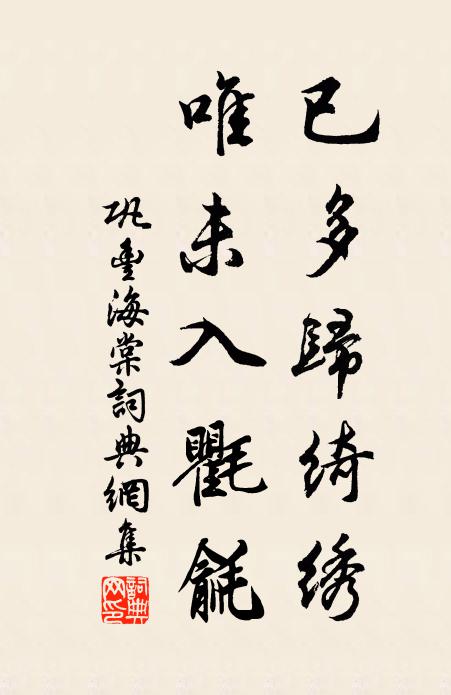 已多歸綺綉
唯未入氍毹
巩豐海棠詞典網集
詞典網印